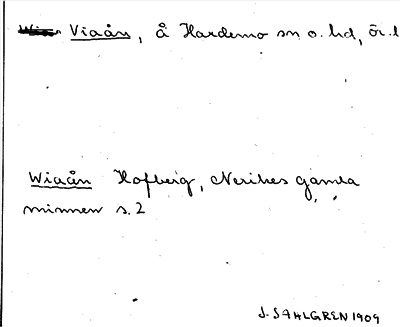 Viaån, å Hardemo sn o. hd, ör. l
Wiaån Hofberg, Nerikes gamla
minnen s. 2
J. SAHLGREN 1909